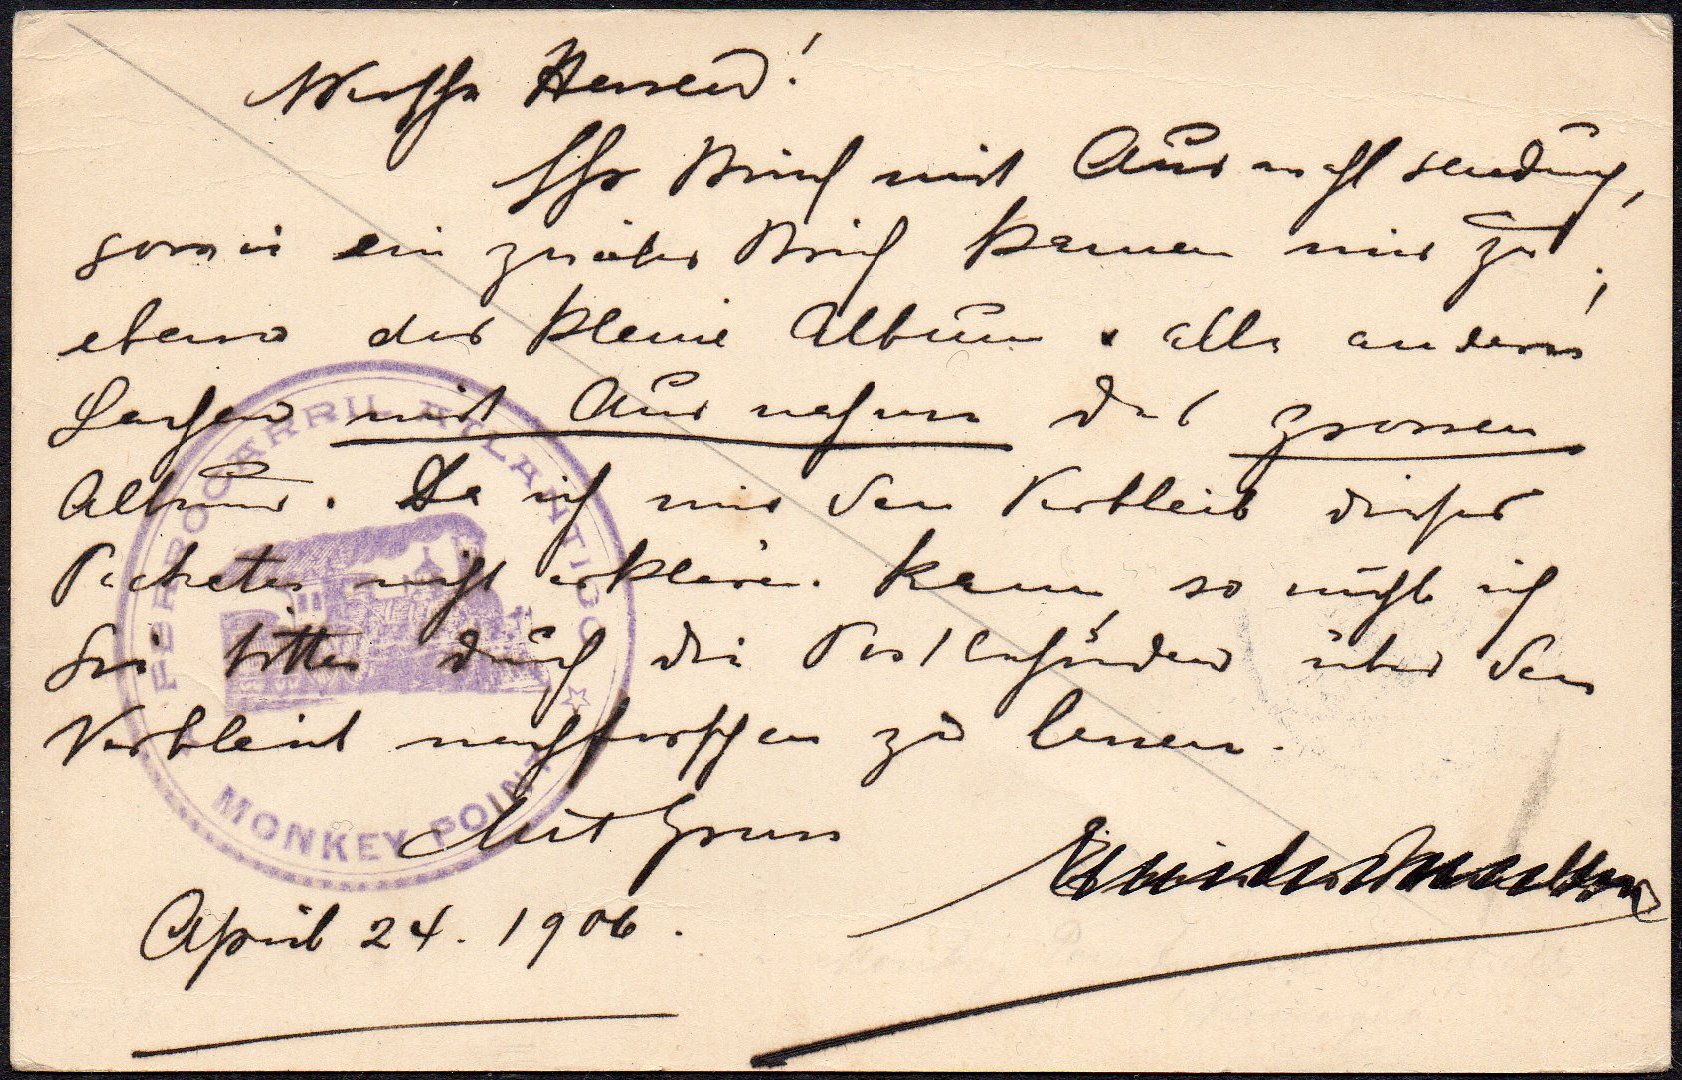 Werthe Herren!
Ihr Brief mit Auswahlsendung,
sowie ein zweiter Brief kamen mir zu;
ebenso das kleine Album & alle anderen
Sachen mit Ausnahme des grossen
Albums. Da ich mir den Verbleib dieses
Packetes nicht erklären kann, so möchte ich
Sie bitten durch die Postbehörden über den
Verbleib nachforschen zu lassen.
Mit Gruss
April 24. 1906.
FERROCARRIL ATLANTICO
MONKEY POINT